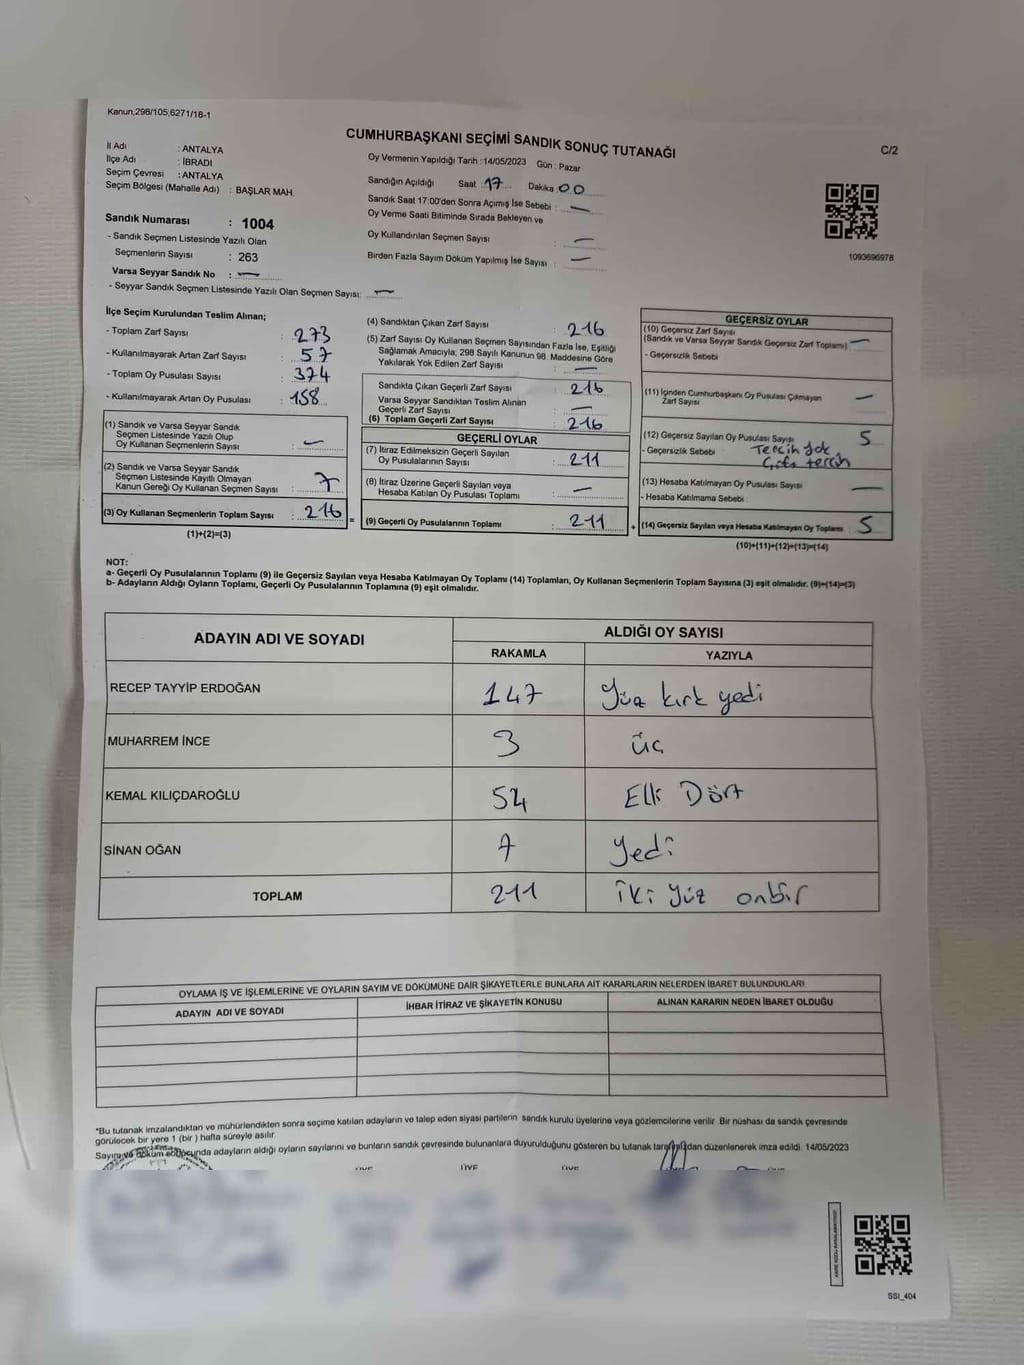 Kanun,298/105;6271/18-1
CUMHURBAŞKANI SEÇİMİ SANDIK SONUÇ TUTANAĞI
C/2
İl Adı : ANTALYA
İlçe Adı : İBRADI
Seçim Çevresi : ANTALYA
Seçim Bölgesi (Mahalle Adı) : BAŞLAR MAH.
Sandık Numarası : 1004
- Sandık Seçmen Listesinde Yazılı Olan
Seçmenlerin Sayısı : 263
Varsa Seyyar Sandık No : —
- Seyyar Sandık Seçmen Listesinde Yazılı Olan Seçmen Sayısı: —
Oy Vermenin Yapıldığı Tarih : 14/05/2023 Gün : Pazar
Sandığın Açıldığı Saat 17 Dakika 00
Sandık Saat 17:00'den Sonra Açımış İse Sebebi : —
Oy Verme Saati Bitiminde Sırada Bekleyen ve
Oy Kullandırılan Seçmen Sayısı : —
Birden Fazla Sayım Döküm Yapılmış İse Sayısı : —
1093696978
İlçe Seçim Kurulundan Teslim Alınan;
- Toplam Zarf Sayısı : 273
- Kullanılmayarak Artan Zarf Sayısı : 57
- Toplam Oy Pusulası Sayısı : 374
- Kullanılmayarak Artan Oy Pusulası : 158
(1) Sandık ve Varsa Seyyar Sandık
Seçmen Listesinde Yazılı Olup
Oy Kullanan Seçmenlerin Sayısı : —
(2) Sandık ve Varsa Seyyar Sandık
Seçmen Listesinde Kayıtlı Olmayan
Kanun Gereği Oy Kullanan Seçmen Sayısı : 7
(3) Oy Kullanan Seçmenlerin Toplam Sayısı : 216
(1)+(2)=(3)
(4) Sandıktan Çıkan Zarf Sayısı : 216
(5) Zarf Sayısı Oy Kullanan Seçmen Sayısından Fazla İse, Eşitliği
Sağlamak Amacıyla; 298 Sayılı Kanunun 98. Maddesine Göre
Yakılarak Yok Edilen Zarf Sayısı : —
Sandıkta Çıkan Geçerli Zarf Sayısı : 216
Varsa Seyyar Sandıktan Teslim Alınan
Geçerli Zarf Sayısı : —
(6) Toplam Geçerli Zarf Sayısı : 216
GEÇERLİ OYLAR
(7) İtiraz Edilmeksizin Geçerli Sayılan
Oy Pusulalarının Sayısı : 211
(8) İtiraz Üzerine Geçerli Sayılan veya
Hesaba Katılan Oy Pusulası Toplamı : —
= (9) Geçerli Oy Pusulalarının Toplamı : 211
GEÇERSİZ OYLAR
(10) Geçersiz Zarf Sayısı
(Sandık ve Varsa Seyyar Sandık Geçersiz Zarf Toplamı) : —
- Geçersizlik Sebebi
(11) İçinden Cumhurbaşkanı Oy Pusulası Çıkmayan
Zarf Sayısı : —
(12) Geçersiz Sayılan Oy Pusulası Sayısı : 5
- Geçersizlik Sebebi Tercih yok
Çift tercih
(13) Hesaba Katılmayan Oy Pusulası Sayısı : —
- Hesaba Katılmama Sebebi
+ (14) Geçersiz Sayılan veya Hesaba Katılmayan Oy Toplamı : 5
(10)+(11)+(12)+(13)=(14)
NOT:
a- Geçerli Oy Pusulalarının Toplamı (9) ile Geçersiz Sayılan veya Hesaba Katılmayan Oy Toplamı (14) Toplamları, Oy Kullanan Seçmenlerin Toplam Sayısına (3) eşit olmalıdır. (9)+(14)=(3)
b- Adayların Aldığı Oyların Toplamı, Geçerli Oy Pusulalarının Toplamına (9) eşit olmalıdır.
ADAYIN ADI VE SOYADI ALDIĞI OY SAYISI
RAKAMLA YAZIYLA
RECEP TAYYİP ERDOĞAN 147 Yüz kırk yedi
MUHARREM İNCE 3 üç
KEMAL KILIÇDAROĞLU 54 Elli Dört
SİNAN OĞAN 7 Yedi
TOPLAM 211 iki yüz onbir
OYLAMA İŞ VE İŞLEMLERİNE VE OYLARIN SAYIM VE DÖKÜMÜNE DAİR ŞİKAYETLERLE BUNLARA AİT KARARLARIN NELERDEN İBARET BULUNDUKLARI
ADAYIN ADI VE SOYADI İHBAR İTİRAZ VE ŞİKAYETİN KONUSU ALINAN KARARIN NEDEN İBARET OLDUĞU
*Bu tutanak imzalandıktan ve mühürlendikten sonra seçime katılan adayların ve talep eden siyasi partilerin sandık kurulu üyelerine veya gözlemcilerine verilir. Bir nüshası da sandık çevresinde
görülecek bir yere 1 (bir) hafta süreyle asılır.
Sayım ve döküm sonucunda adayların aldığı oyların sayılarını ve bunların sandık çevresinde bulunanlara duyurulduğunu gösteren bu tutanak tarafımızdan düzenlenerek imza edildi. 14/05/2023
ÜYE ÜYE ÜYE ÜYE
SSI_404